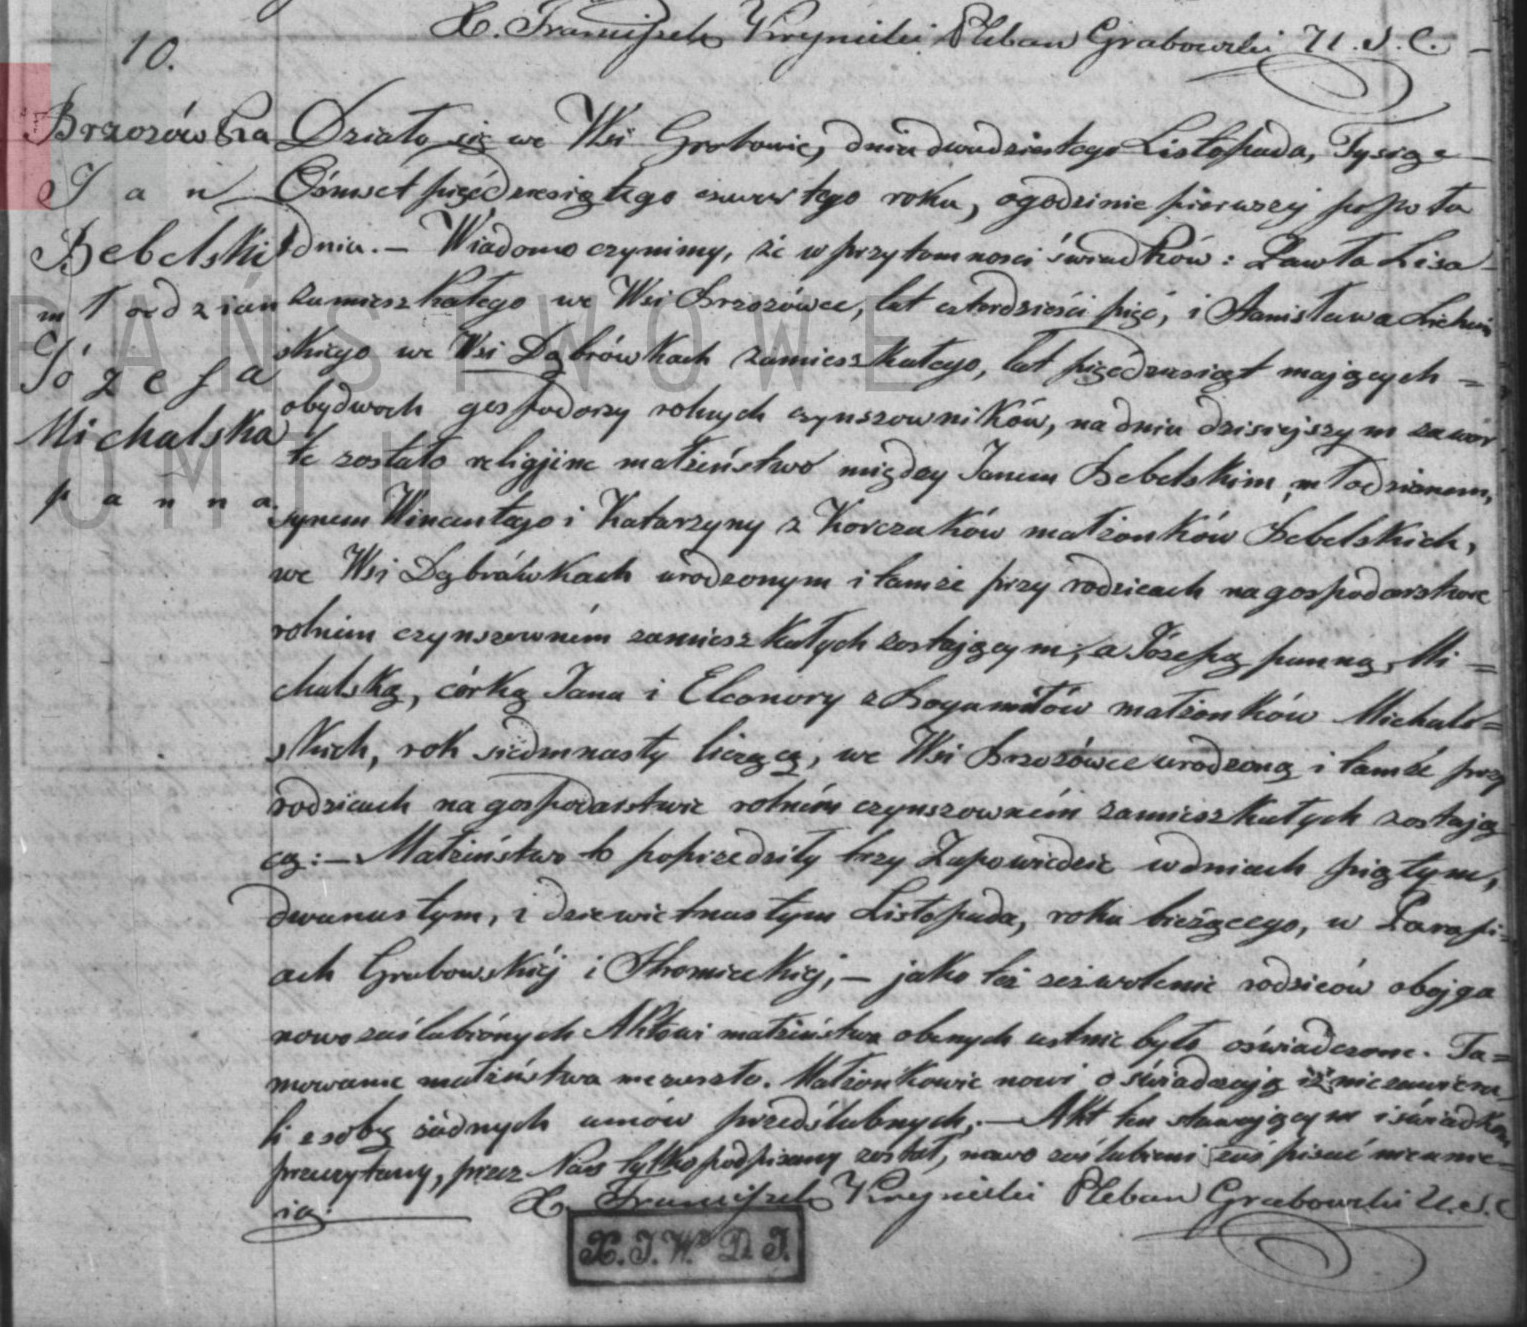 X. Franciszek Krynicki Pleban Grabowski U.S.C.
10.
Brzozówka
Jan
Bebelski
młodzian
Józefa
Michalska
panna
Działo się we Wsi Grabowie, dnia dwudziestego Listopada, Tysiąc
Ośmset pięćdziesiątego czwartego roku, o godzinie pierwszej popołu
dniu. — Wiadomo czynimy, że w przytomności świadków: Pawła Lisa
zamieszkałego we Wsi Brzozówce, lat czterdzieści pięć, i Stanisława
skiego we Wsi Dąbrówkach zamieszkałego, lat pięćdziesiąt mających =
obydwoch gospodarzy rolnych czynszowników, na dniu dzisiejszym zawar
te zostało religijne małżeństwo między Janem Bebelskim, młodzianem,
synem Wincentego i Katarzyny z Korczaków małżonków Bebelskich,
we Wsi Dąbrówkach urodzonym i tamże przy rodzicach na gospodarstwie
rolném czynszowném zamieszkałych zostającym, a Józefą panną Mi =
chalską, córką Jana i Eleonory z Bogumiłów małżonków Michal =
skich, rok siedmnasty liczącą, we Wsi Brzozówce urodzoną i tamże przy
rodzicach na gospodarstwie rolném czynszowném zamieszkałych zostają
cą: — Małżeństwo to poprzedziły trzy Zapowiedzie w dniach piątym,
dwunastym, i dziewietnastym Listopada, roku bieżącego, w Parafi =
ach Grabowskiéj i Stromieckiej, — jako też zezwolenie rodziców obojga
nowozaślubiónych Aktowi małżeństwa obecnych ustnie było oświadczone. Ta =
mowanie małżeństwa nie zaszło. Małżonkowie nowi oświadczają iż nie zawiera
li z sobą żadnych umów przedślubnych. — Akt ten stawającym i świadkom
przeczytany, przez Nas tylko podpisany został, nowo zaślubieni zaś pisać nieumie =
ją.
X. Franciszek Krynicki Pleban Grabowski U.S.C.
X. I. W. D. I.
PAŃSTWOWE
OMIU